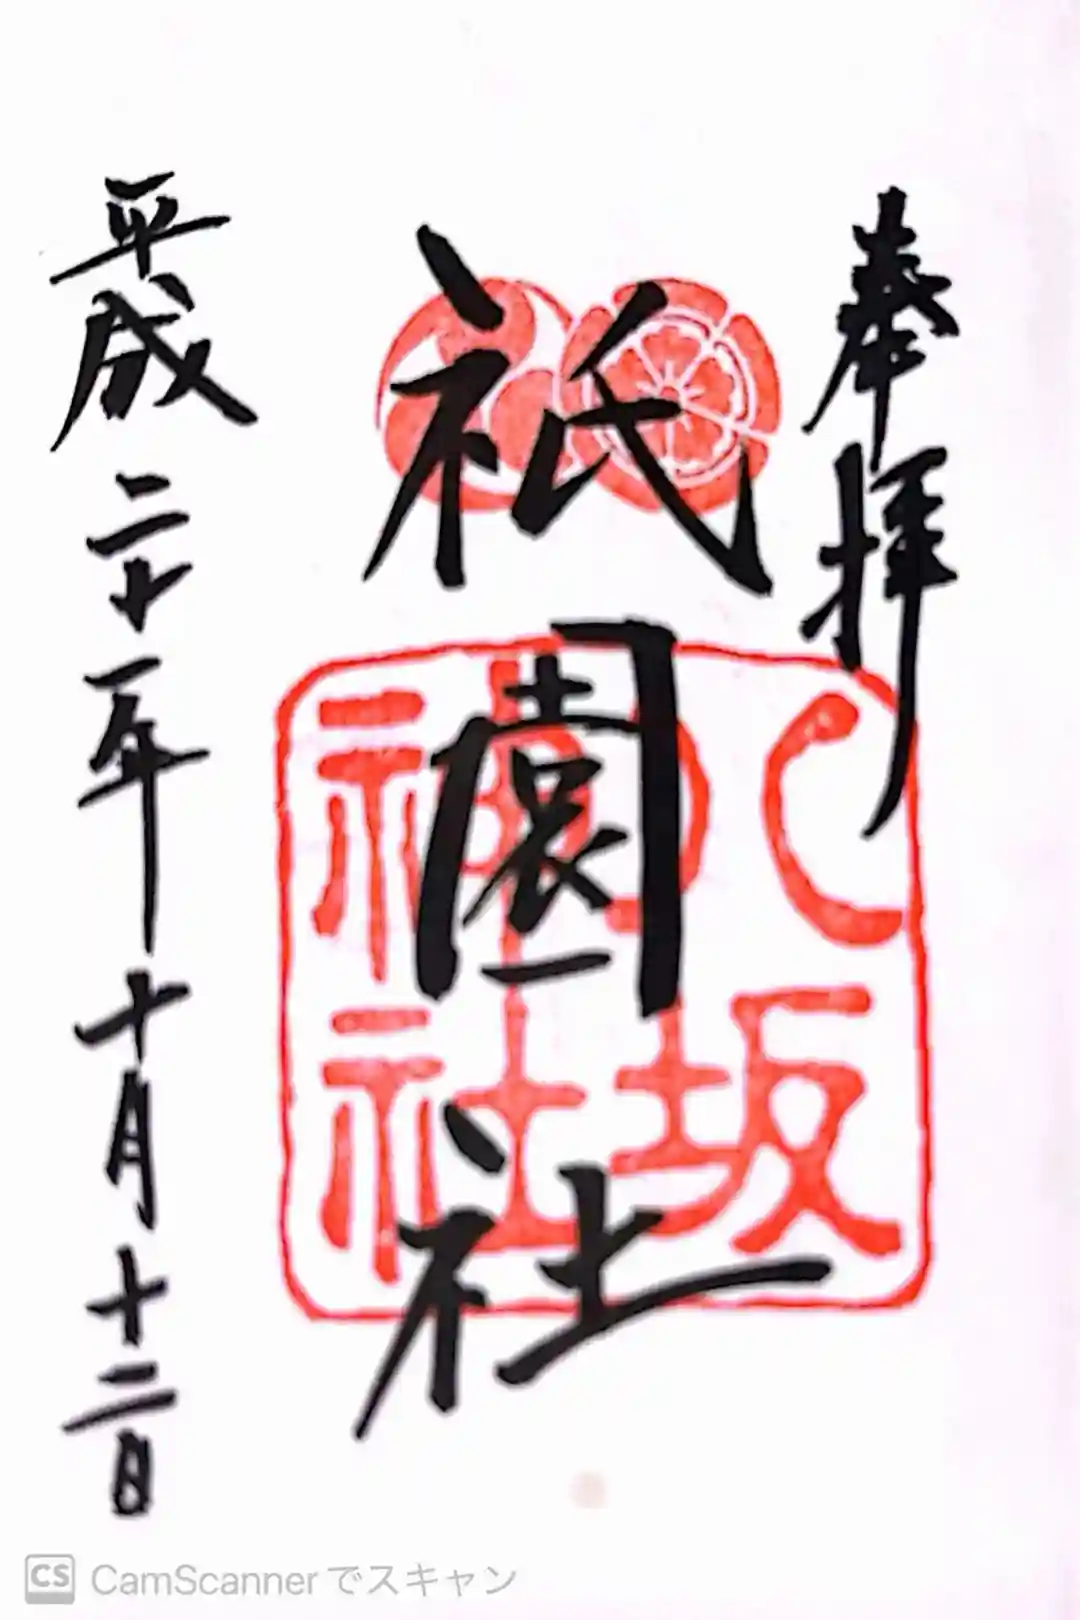 奉拝
祇園社
八坂
神社
平成二十一年十月十二日
CS CamScannerでスキャン